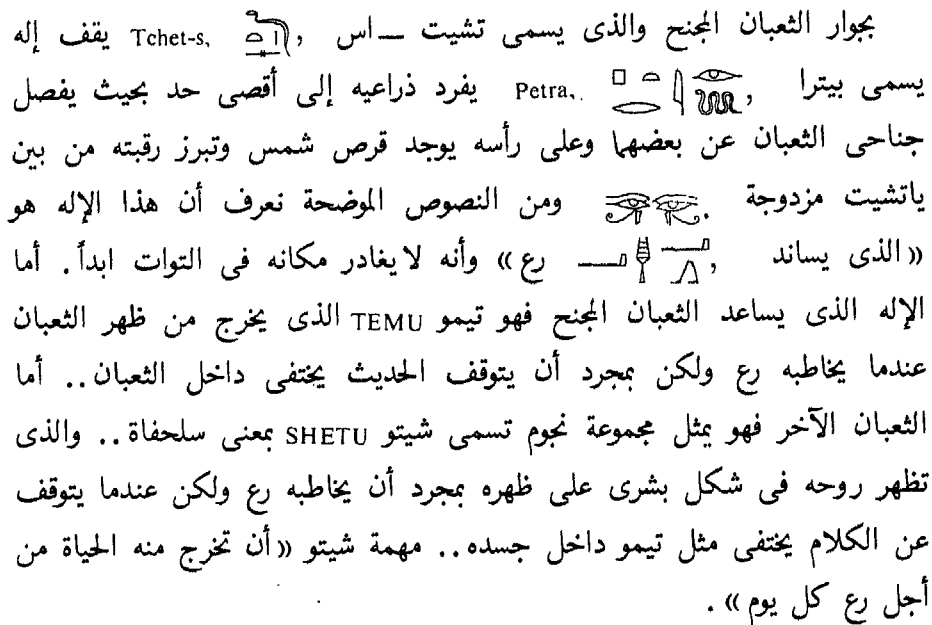 بجوار الثعبان المجنح والذى يسمى تشيت ــ اس , Tchet-s, يقف إله
يسمى بيترا , Petra, يفرد ذراعيه إلى أقصى حد بحيث يفصل
جناحى الثعبان عن بعضهما وعلى رأسه يوجد قرص شمس وتبرز رقبته من بين
ياتشيت مزدوجة . ومن النصوص الموضحة نعرف أن هذا الإله هو
«الذى يساند , رع» وأنه لا يغادر مكانه فى التوات ابداً. أما
الإله الذى يساعد الثعبان المجنح فهو تيمو TEMU الذى يخرج من ظهر الثعبان
عندما يخاطبه رع ولكن بمجرد أن يتوقف الحديث يختفى داخل الثعبان.. أما
الثعبان الآخر فهو يمثل مجموعة نجوم تسمى شيتو SHETU بمعنى سلحفاة.. والذى
تظهر روحه فى شكل بشرى على ظهره بمجرد أن يخاطبه رع ولكن عندما يتوقف
عن الكلام يختفى مثل تيمو داخل جسده.. مهمة شيتو «أن تخرج منه الحياة من
أجل رع كل يوم».